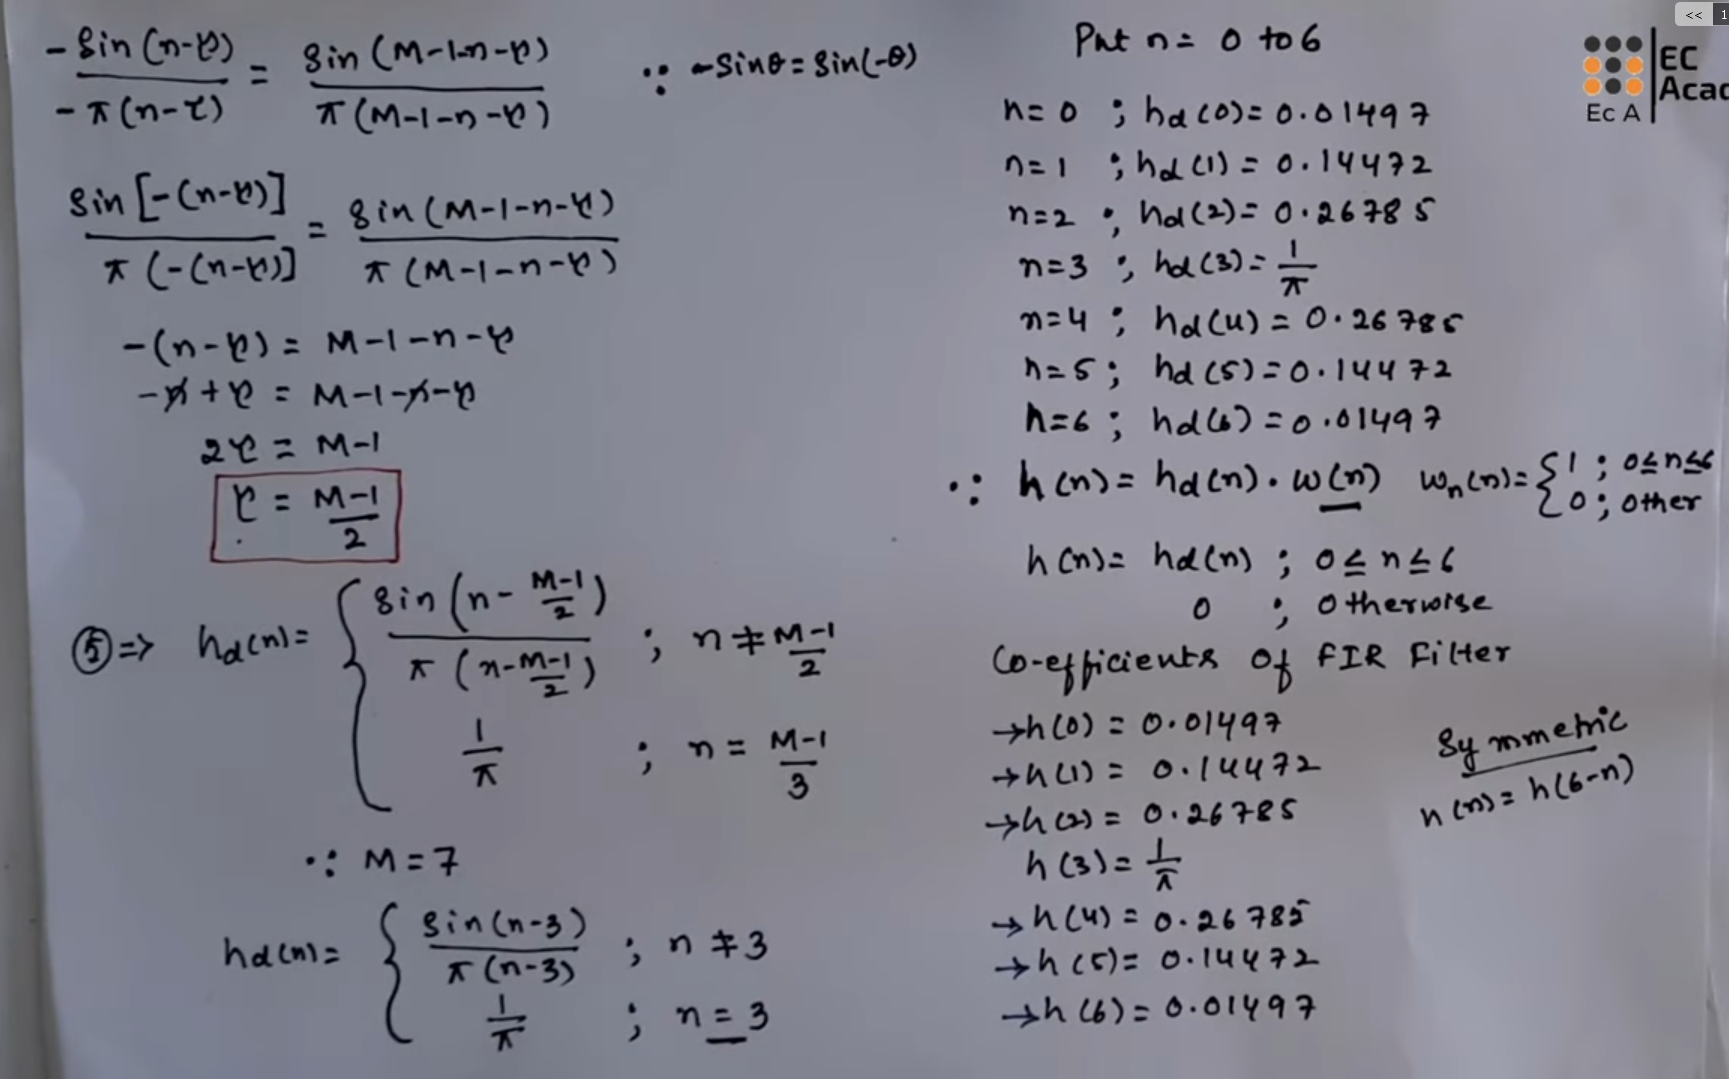 -sin(n-τ) / -π(n-τ) = sin(M-1-n-τ) / π(M-1-n-τ) ∵ -sinθ = sin(-θ)
sin[-(n-τ)] / π(-(n-τ)] = sin(M-1-n-τ) / π(M-1-n-τ)
-(n-τ) = M-1-n-τ
-n+τ = M-1-n-τ
2τ = M-1
τ = M-1 / 2
⑤ => hd(n) = { sin(n - M-1/2) / π(n - M-1/2) ; n ≠ M-1/2
1/π ; n = M-1/3
∵ M = 7
hd(n) = { sin(n-3) / π(n-3) ; n ≠ 3
1/π ; n = 3
Put n = 0 to 6
n=0 ; hd(0) = 0.01497
n=1 ; hd(1) = 0.14472
n=2 ; hd(2) = 0.26785
n=3 ; hd(3) = 1/π
n=4 ; hd(4) = 0.26785
n=5 ; hd(5) = 0.14472
n=6 ; hd(6) = 0.01497
∵ h(n) = hd(n) . w(n) wn(n) = { 1 ; 0≤n≤6
0 ; other
h(n) = hd(n) ; 0 ≤ n ≤ 6
0 ; otherwise
Co-efficients of FIR Filter
→h(0) = 0.01497
→h(1) = 0.14472
→h(2) = 0.26785
h(3) = 1/π
→h(4) = 0.26785
→h(5) = 0.14472
→h(6) = 0.01497
Symmetric
h(n) = h(6-n)
EC
Acad
Ec A
<< 1